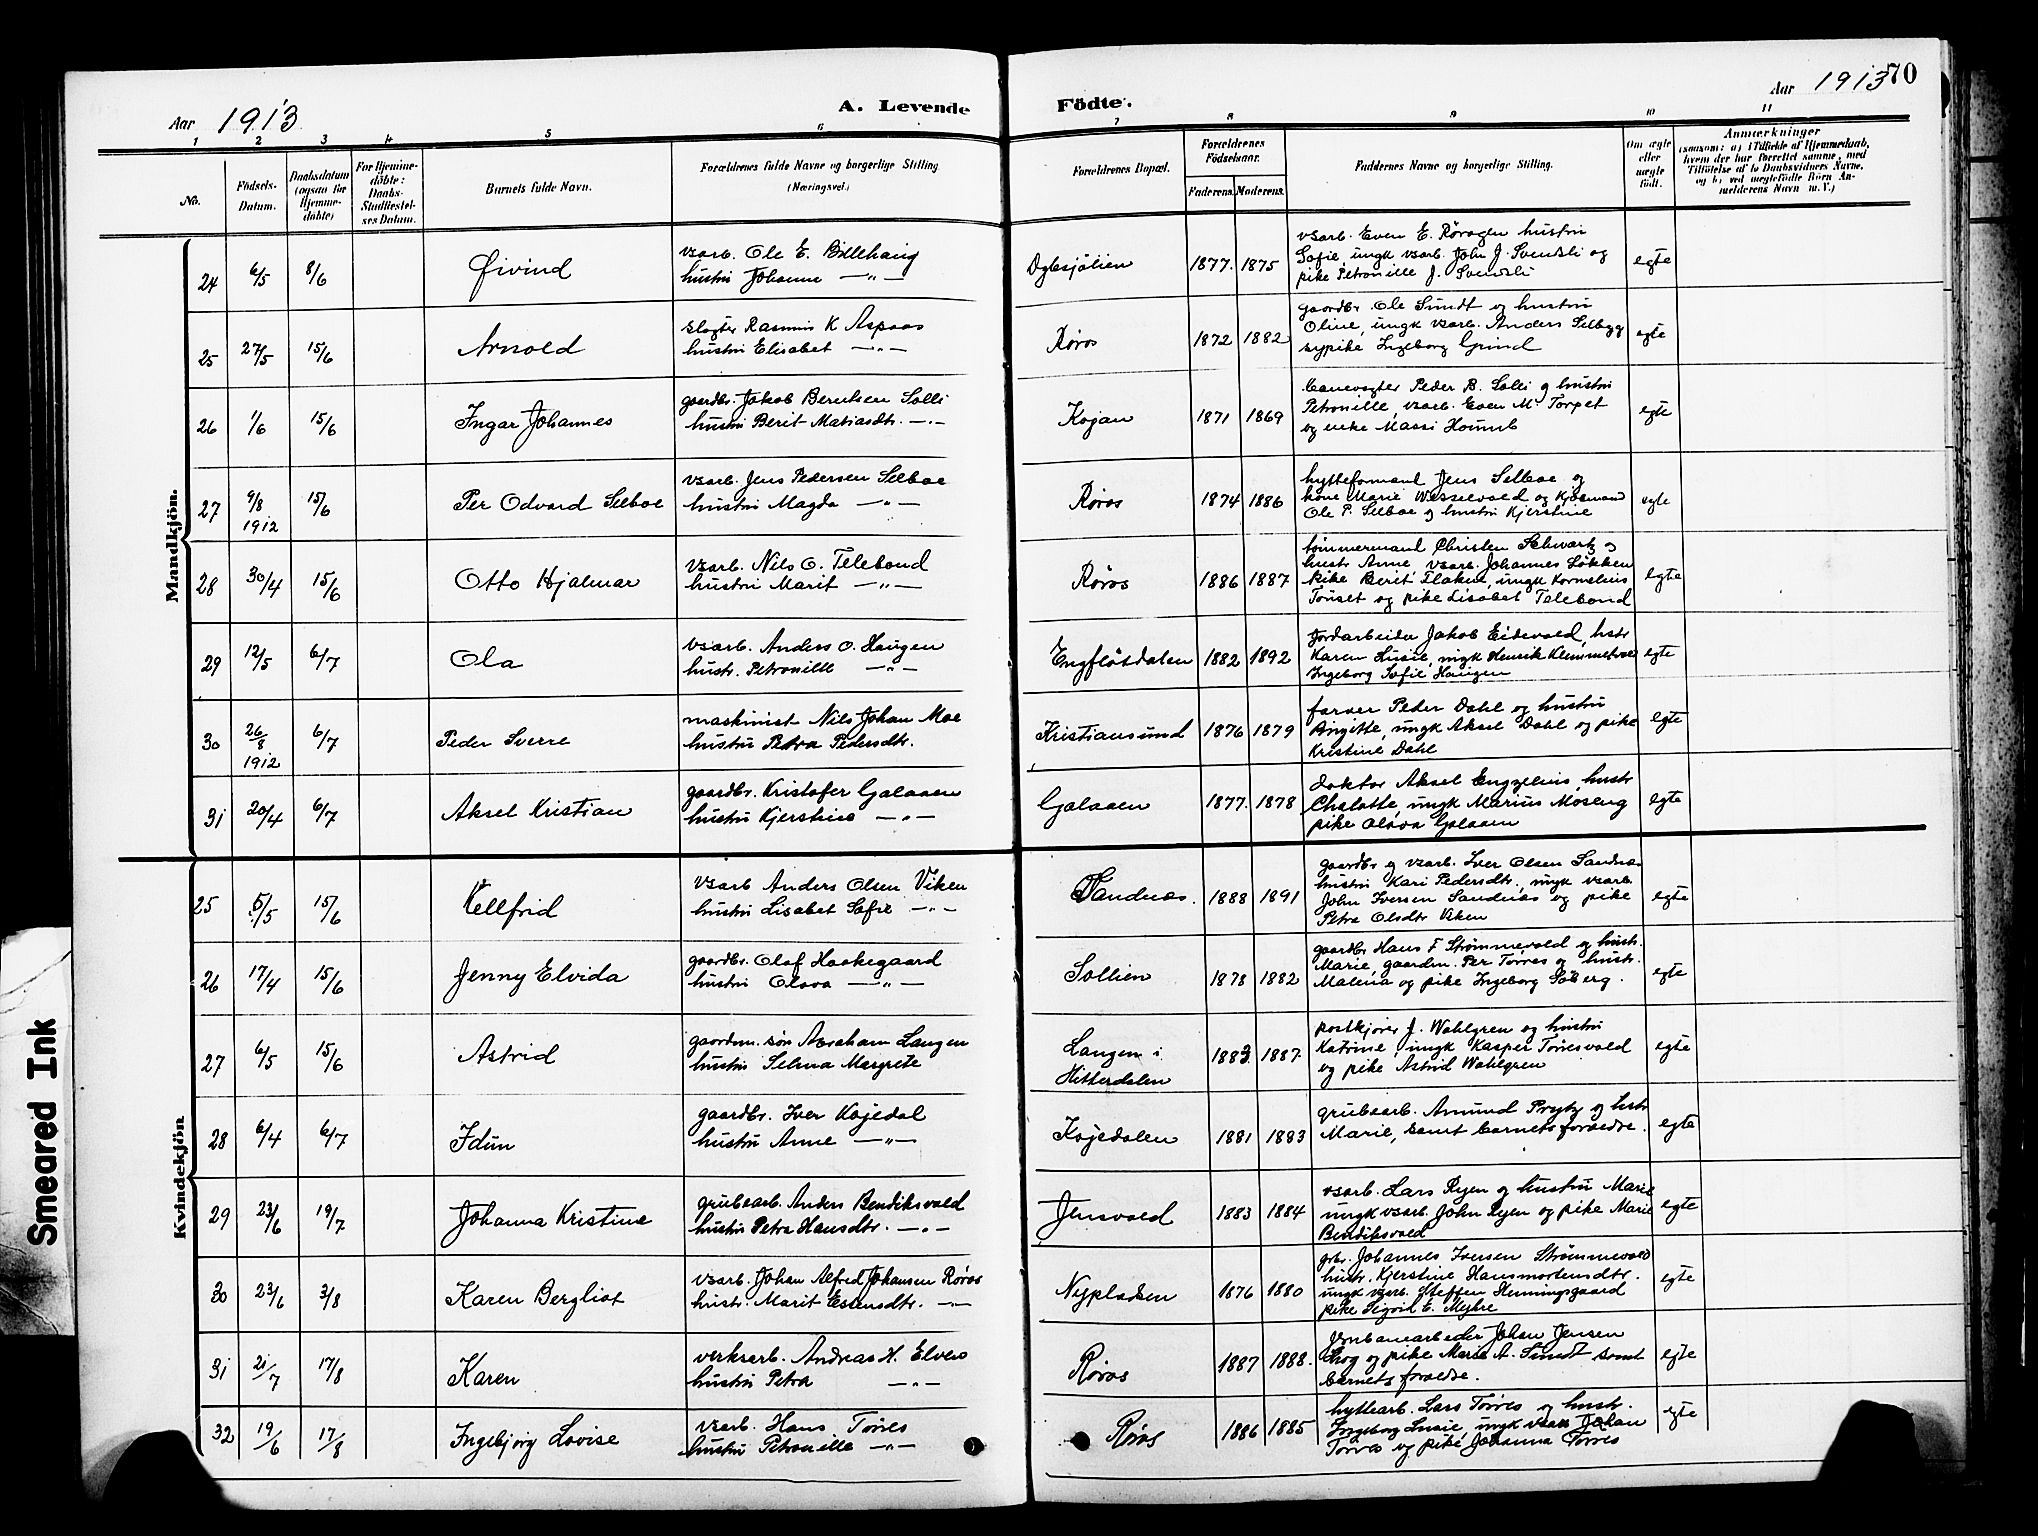 70
Aar 1913
A. Levende
Födte.
Aar 1913
1 2 3 4 5 6 7 8 9 10 11
No.
Födsels-
Datum.
Daabsdatum
(ogsaa for
Hjemme-
döbte)
For Hjemme-
döbte:
Daabs-
Stadfæstel-
ses Datum.
Barnets fulde Navn.
Forældrenes fulde Navne og borgerlige Stilling.
(Næringsvei.)
Forældrenes Bopæl.
Forældrenes
Födselsaar.
Faderens.
Moderens.
Faddernes Navne og borgerlige Stilling.
Om ægte
eller
uægte
födt.
Anmærkninger
(saasom: a) i Tilfælde af Hjemmedaab,
hvem der har forrettet samme, med
Tilföielse af to Daabsvidners Navne,
og b) ved uægtefödte Börn An-
melderens Navn m. V.)
Mandkjön.
24 6/5 8/6 Øivind
vsarb. Ole E. Billehaug
hustru Johanne —„—
1877. 1875
vsarb. Even E. Røragen hustru
Sofie, ungk vsarb. John J. Svendsli og
pike Petronille J. Svendsli
egte
25 27/5 15/6 Arnold
slagter Rasmus K Aspaas
hustru Elisabet —„—
Røros 1872 1882
gaardbr. Ole Sundt og hustru
Oline, ungk vsarb. Anders Selbygg
sypike Ingeborg Grind
egte
26 1/6 15/6 Ingar Johannes
gaardbr. Jakob Berntsen Solli
hustru Berit Matiasdtr. —„—
Kojan 1871 1869
banevogter Peder B. Solli og hustru
Petronille, vsarb. Even M. Torpet
og enke Massi Houmb
egte
27 9/8 1912 15/6 Per Odvard Selboe
vsarb. Jens Pedersen Selboe
hustru Magda —„—
Røros 1874 1886
hytteformand Jens Selboe og
kone Marie Wesselvold og Kjøbmand
Ole P. Selboe og hustru Kjerstine
egte
28 30/4 15/6 Otto Hjalmar
vsarb. Nils O. Telebond
hustru Marit —„—
Røros 1886 1887
tømmermand Christen Schwartz og
hustr Anne, vsarb. Johannes Løkken
pike Berit Flaken, ungk Kornelius
Tønset og pike Lisabet Telebond
egte
29 12/5 6/7 Ola
vsarb. Anders O. Haugen
hustr. Petronille —„—
Engfløtdalen 1882 1892
Jordarbeider Jakob Eidsvold, hstr
Karen Lusie, ungk Henrik Klemmetvol
Ingeborg Sofie Haugen
egte
30 26/8 1912 6/7 Peder Sverre
maskinist Nils Johan Moe
hustru Petra Pedersdtr.
Kristiansund 1876 1879
farver Peder Dahl og hustru
Birgitte, ungk Aksel Dahl og pike
Kristine Dahl
egte
31 20/4 6/7 Aksel Kristian
gaardbr. Kristofer Galaaen
hustru Kjerstine —„—
Galaaen 1877. 1878
doktor Aksel Engzelius, hustr
Chalotte, ungk Marius Moseng
pike Olava Galaaen
egte
Kvindekjön
25 5/5 15/6 Kellfrid
vsarb Anders Olsen Viken
hustru Lisabet Sofie —„—
Sandnæs. 1888 1891
gaardbr og vsarb. Iver Olsen Sandnæs
hustru Kari Pedersdtr., ungk vsarb.
John Iversen Sandnæs og pike
Petra Olsdtr Viken
egte
26 17/4 15/6 Jenny Elvida
gaardbr. Olaf Haakegaard
hustru Olava —„—
Sollien 1878 1882
gaardbr Hans F Strømmevold og hustr.
Marie, gaardm. Per Tørres og hustr.
Malena og pike Ingeborg Søberg.
egte
27 6/5 15/6 Astrid
gaardm. søn Abraham Langen
hustru Selma Margrete
Langen i
Hitterdalen
1883 1887.
postkjører J. Wahlgren og hustru
Katrine, ungk Kasper Tørresvold
og pike Astrid Wahlgren
egte
28 6/4 6/7 Idun
gaardbr. Iver Kojedal
hustru Anne —„—
Kojedalen 1881 1883
grubearb. Amund Prytz og hstr
Marie, samt barnets foreldre.
egte
29 23/6 19/7 Johanna Kristine
grubearb. Anders Bendiksvold
hustru Petra Hansdtr. —„—
Jensvold 1883 1884
vsarb. Lars Ryen og hustru Marie
ungk vsarb. John Ryen og pike Marie
Bendiksvold
egte
30 23/6 3/8 Karen Bergliot
vsarb. Johan Alfred Johansen Røros
hustr. Marit Estensdtr. —„—
Nypladsen 1876 1880
grbr. Johannes Iversen Strømmevold
hustr. Kjerstine Hansmortensdtr.
ungk vsarb. Steffen Henningsgaard
pike Sigrid E. Myhre
egte
31 21/7 17/8 Karen
verksarb. Andreas H. Elvero
hustru Petra —„—
Røros 1887 1888.
Jernbanearbeider Johan Jensen
Skog og pike Marie A. Sundt samt
barnets forældre.
egte
32 19/6 17/8 Ingebjørg Lovise
vsarb. Hans Tørres
hustru Petronille —„—
Røros 1886 1885
hyttearb. Lars Tørres og hustr.
Ingeborg Lusie, ungk vsarb Johan
Tørres og pike Johanna Tørres
egte
Smeared Ink